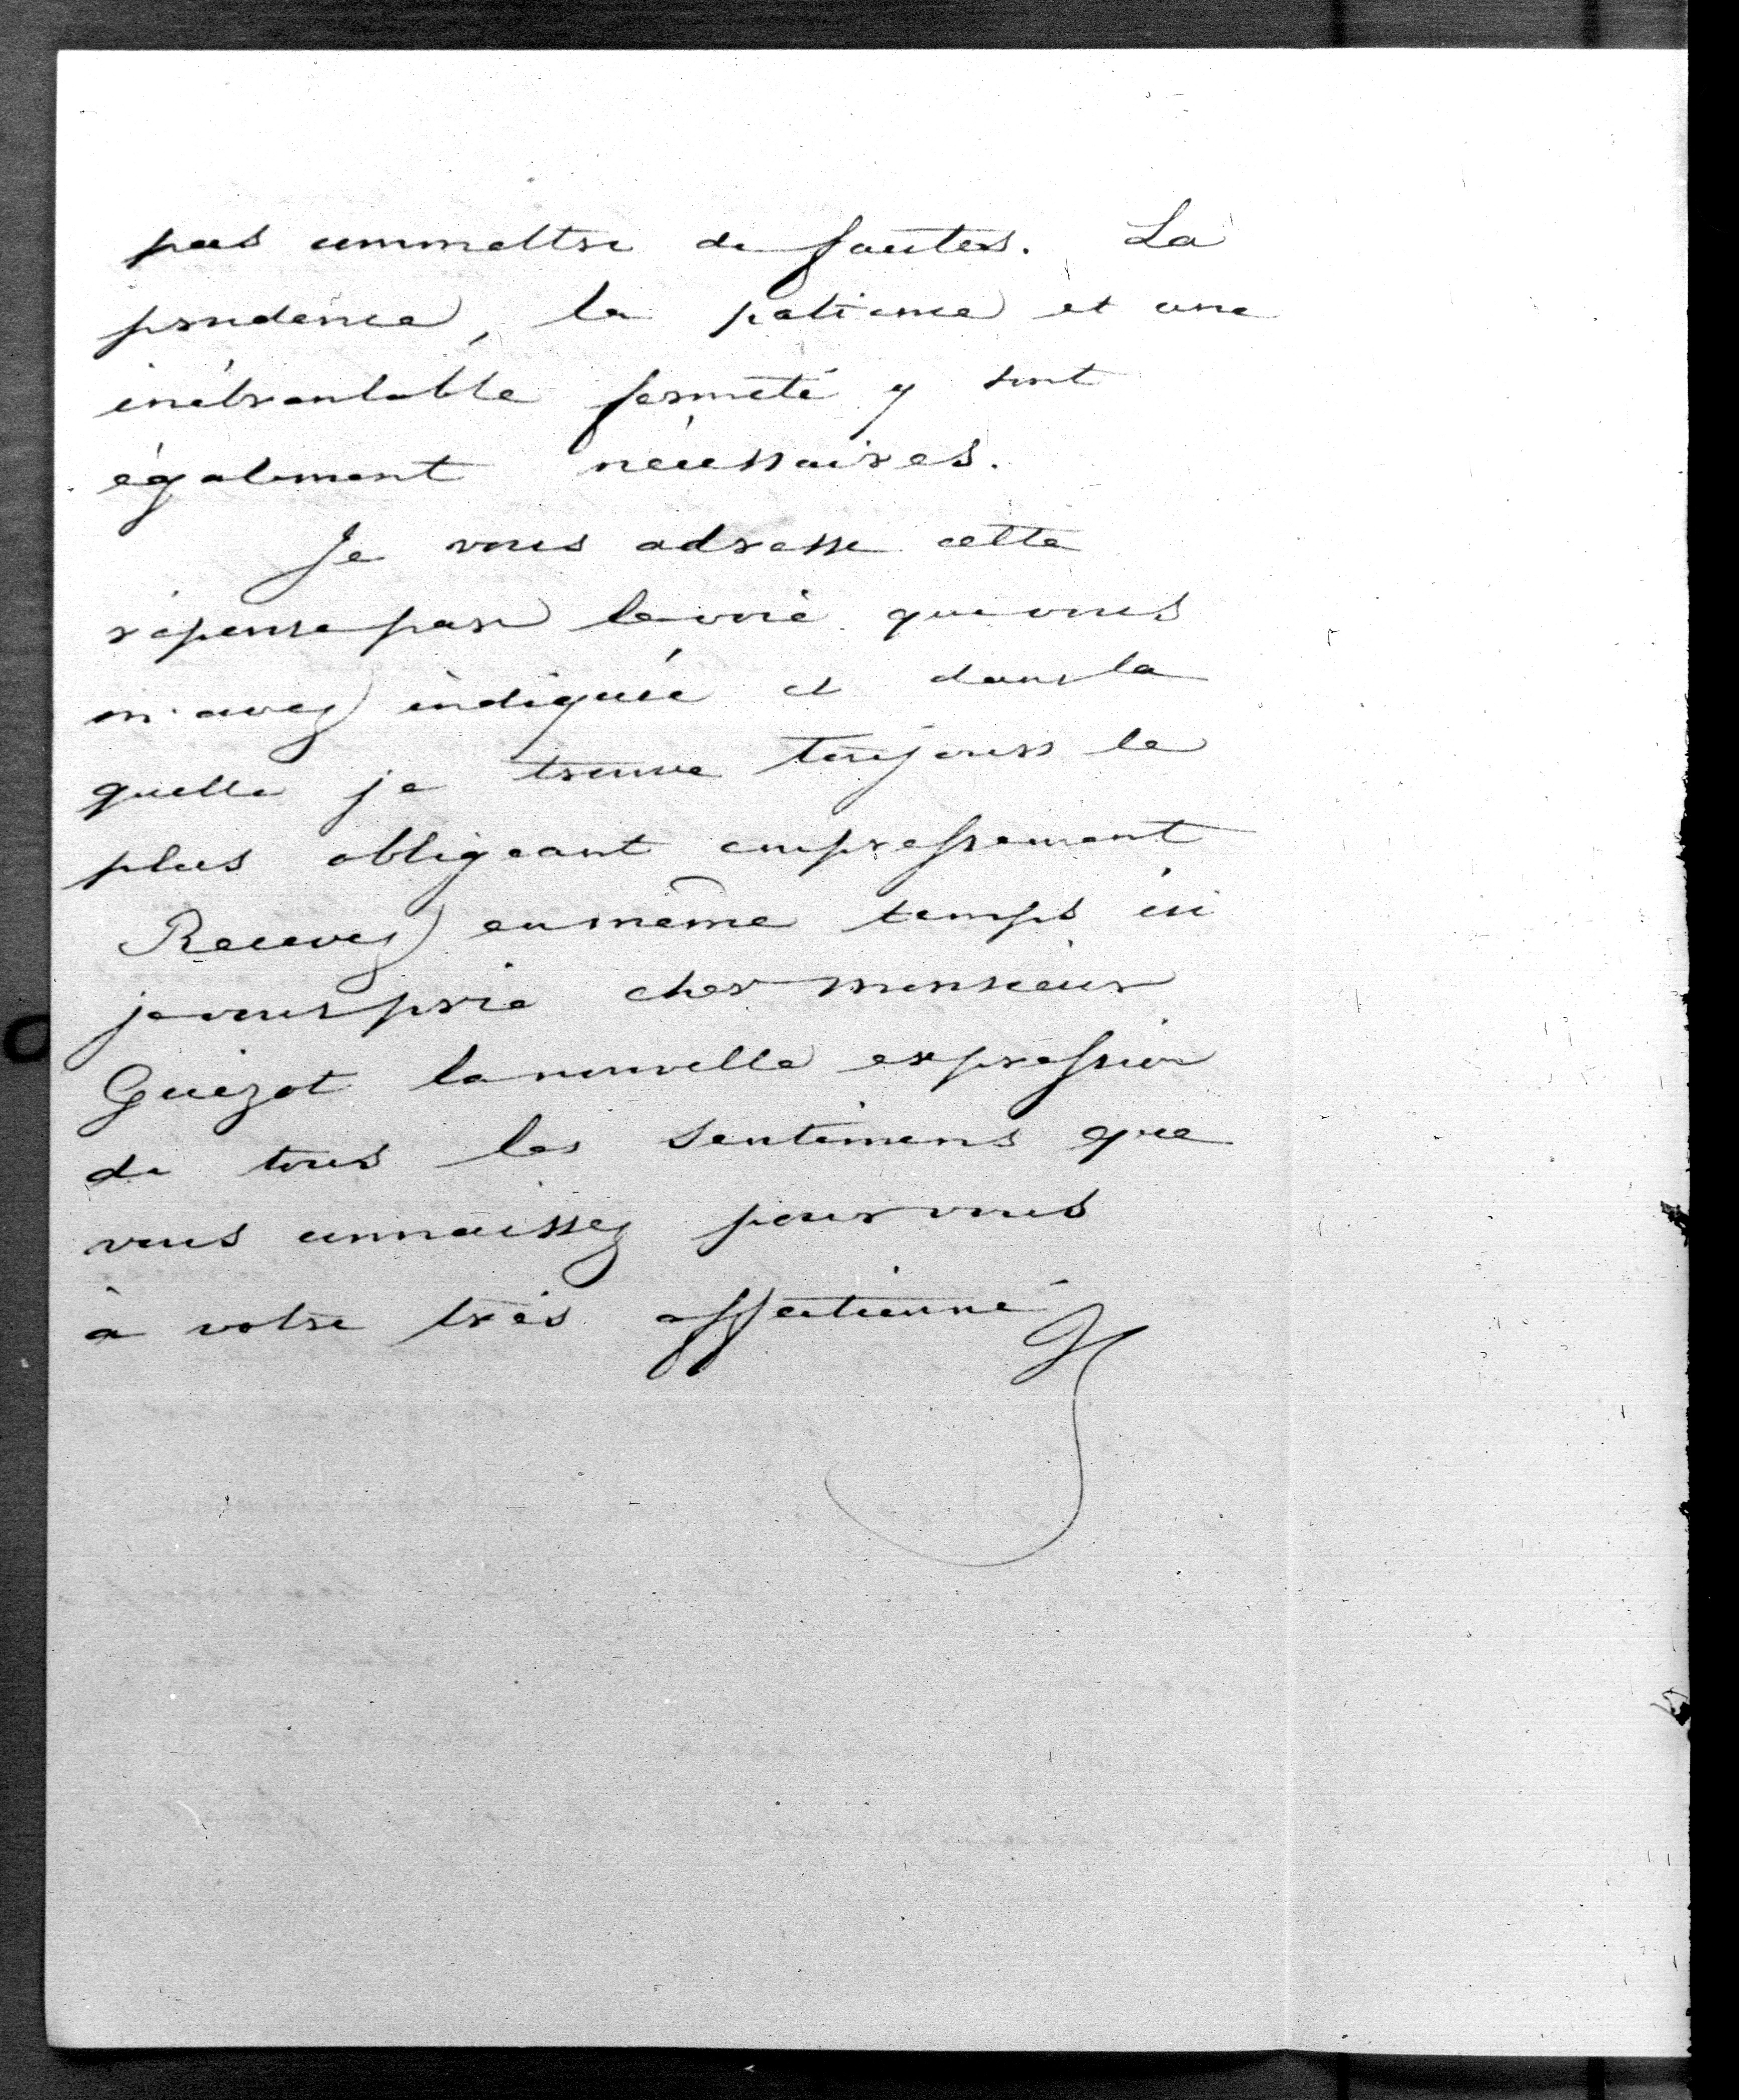 pas commettre de fautes. La
prudence, la patience et une
inébranlable fermeté y sont
également nécessaires.
Je vous adresse cette
réponse par la voie que vous
m'avez indiquée et dans la
quelle je trouve toujours le
plus obligeant empressement
Recevez en même temps ici
je vous prie cher monsieur
Guizot la nouvelle expression
de tous les sentimens que
vous connaissez pour vous
à votre très affectionné